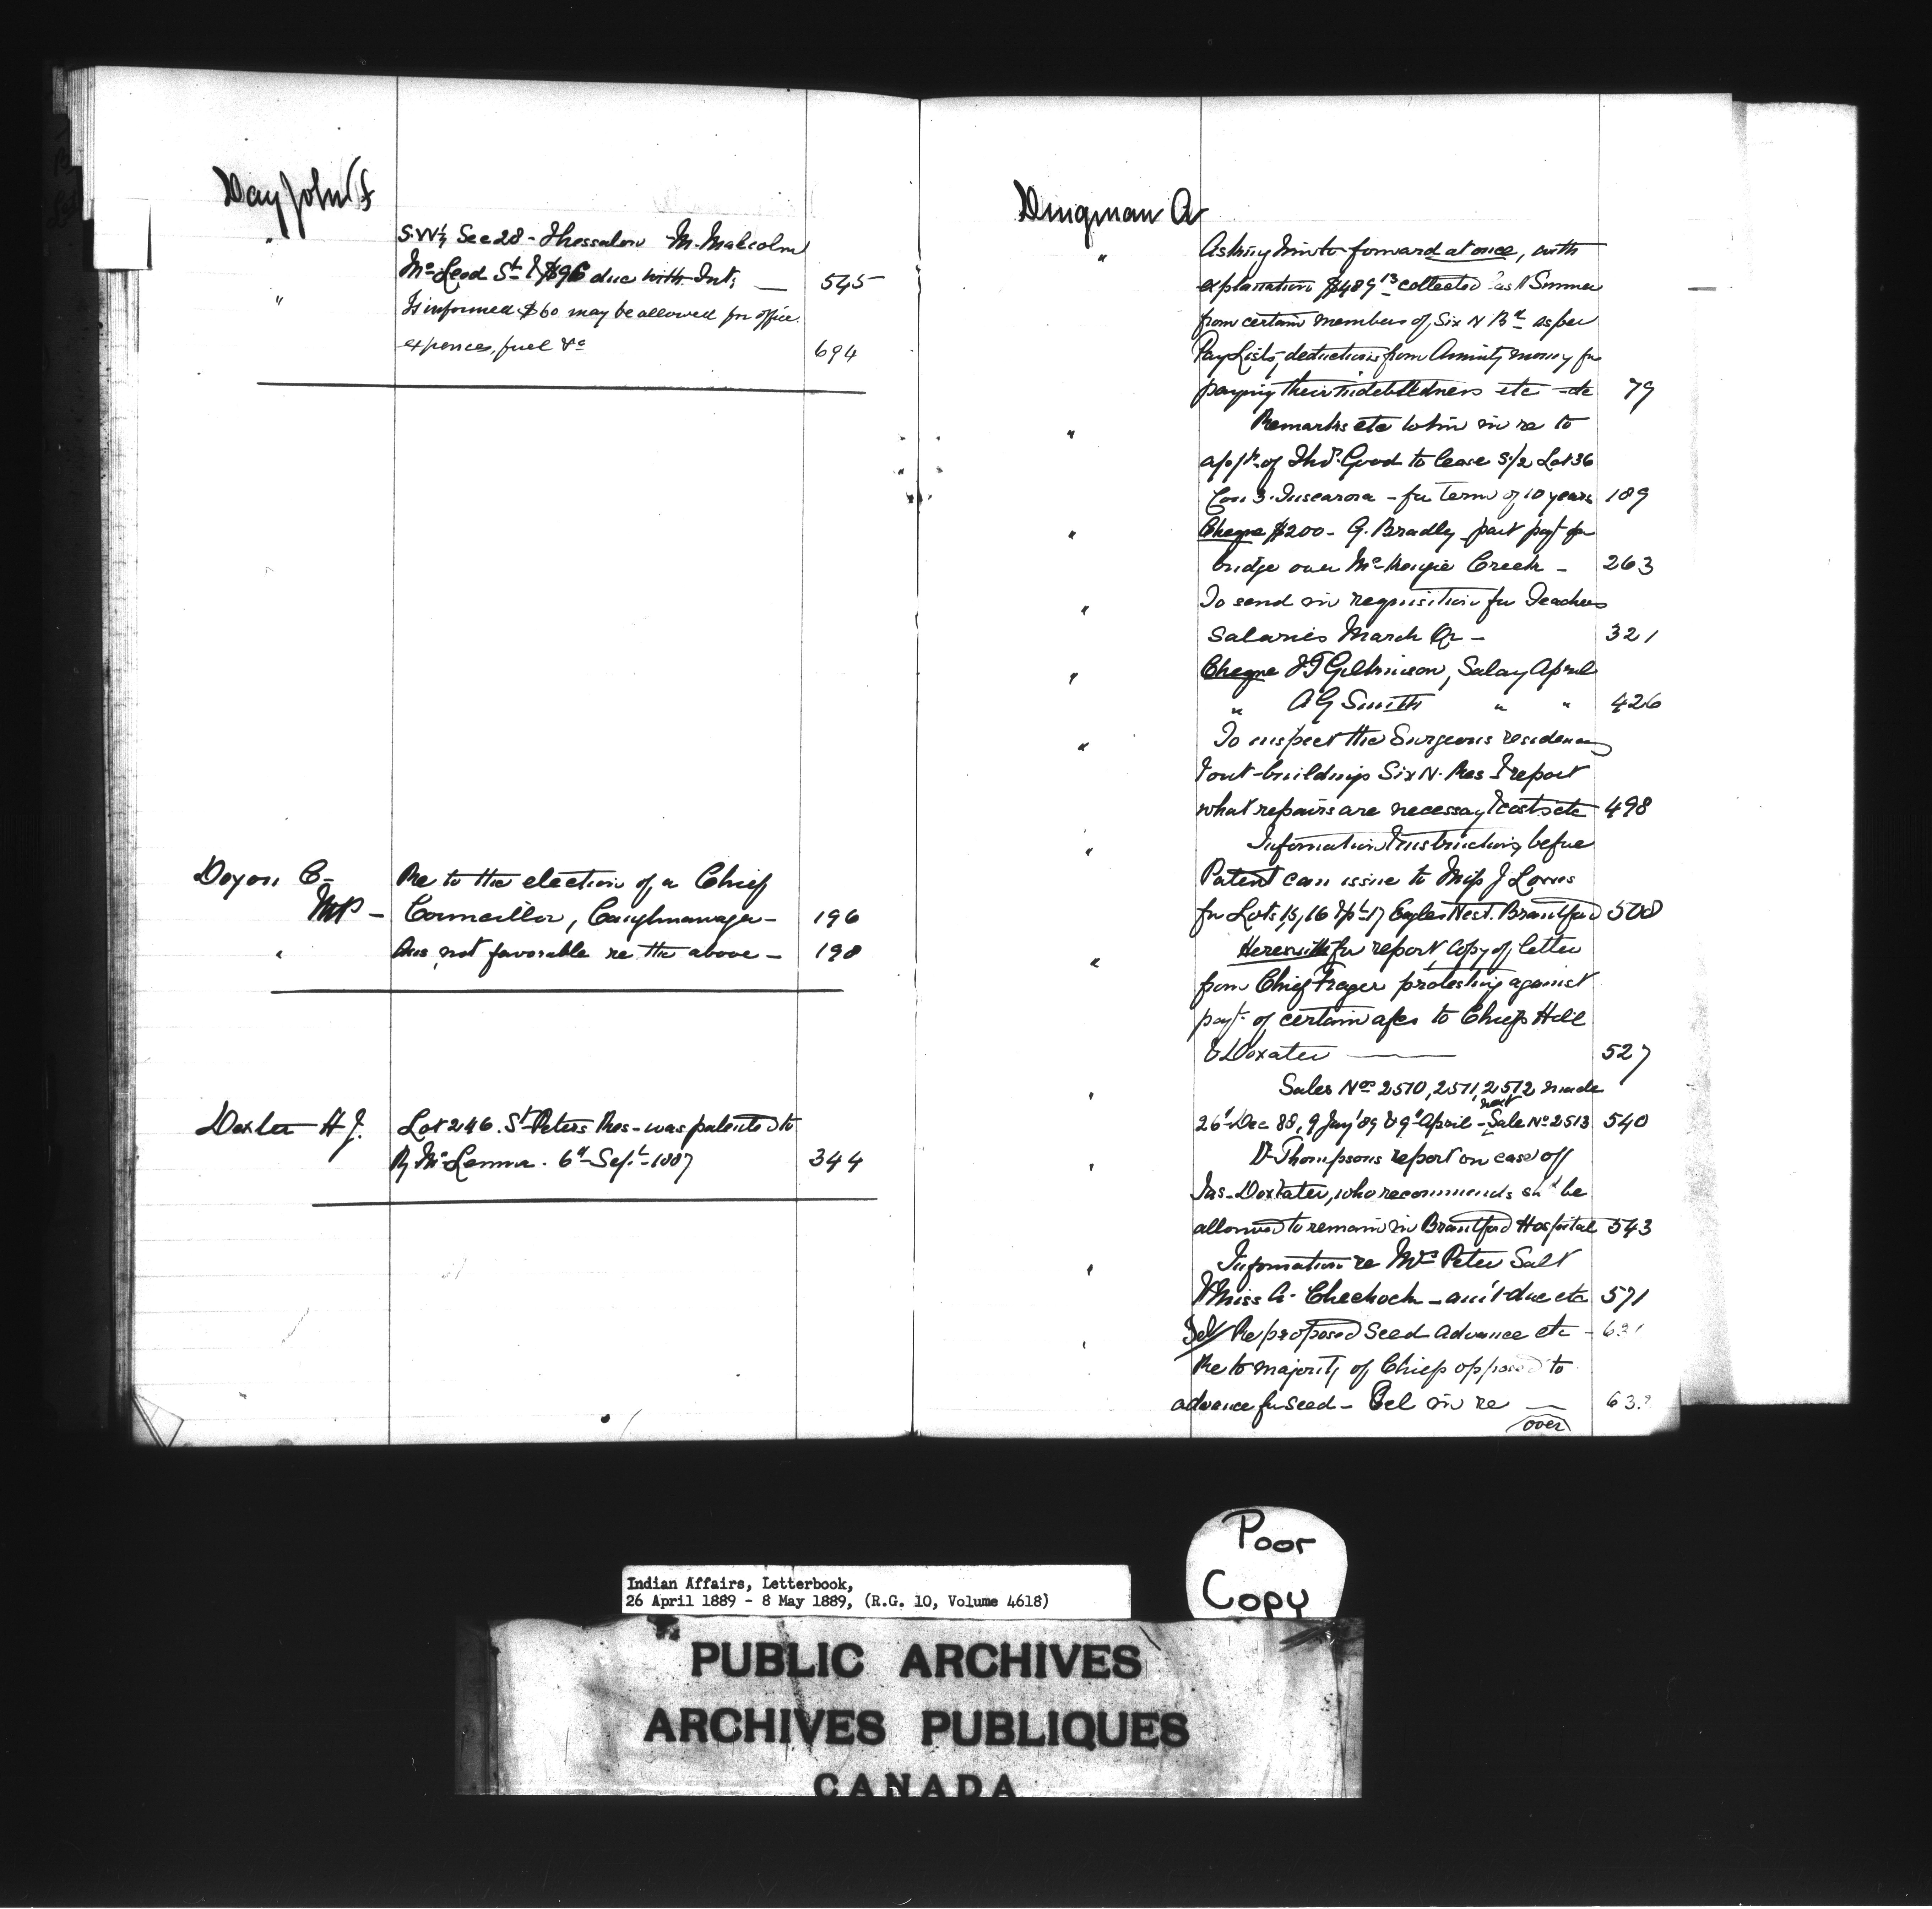 Day John
" S.W¼ Sec 28 - Thessalon M. Malcolm
McLeod St $96 due with Int; — 545
" Is informed $60 may be allowed for office
expences, fuel &c 694
Doyon C - Re to the election of a Chief
MP - Councillor, Caughnawaga - 196
" Ans not favorable re the above - 198
Dexter H J. Lot 246. St Peters Res - was patented to
R McLennan. 6th Sept 1887 344
Dingman A
" Asking him to forward at once, with
explanation $489 13 collected last Summer
from certain members of Six N Bd as per
Pay Lists, deductions from Annuity money for
paying their indebtedness etc etc 79
" Remarks etc to him in re to
appn of Thos Good to lease S/2 Lot 36
Con 3. Tuscarora - for term of 10 years 189
" Cheque $200 - G. Bradly part payt for
bridge over McKenzie Creek - 263
" To send in requisition for Teachers
Salaries March Qr - 321
" Cheque J T Gilkinson, Salary April
" A G Smith " " 426
" To inspect the Surgeons residence
& out-buildings Six N. Res & report
what repairs are necessary & costs etc 498
" Information & instructions before
Patent can issue to Miss J
for Lots 15, 16 & pt 17 Eagles Nest. Brantford 508
" Herewith for report, copy of letter
from Chief protesting against
payt of certain a/cs to Chiefs Hill
& Doxater — 527
" Sales Nos 2510, 2511, 2512 made
26th Dec 88, 9 Jany '89 & 9th April - next Sale No 2513 540
" Dr Thompsons report on case of
Jas. Doxtater, who recommends shd be
allowed to remain in Brantford Hospital 543
" Information re Mrs Peter Salt
& Miss A. Chechock - am't due etc 571
" Tel/ Re proposed Seed advance etc - 631
Re to majority of Chiefs opposed to
advance for seed - Tel in re — 63
over
Poor
Copy
Indian Affairs, Letterbook,
26 April 1889 - 8 May 1889, (R.G. 10, Volume 4618)
PUBLIC ARCHIVES
ARCHIVES PUBLIQUES
CANADA